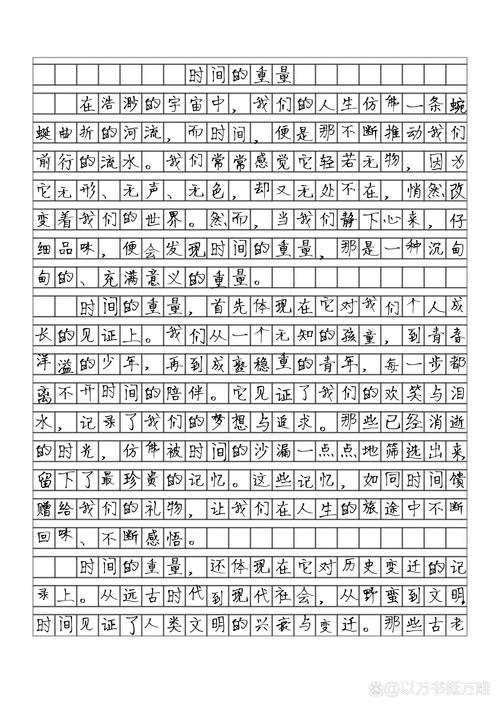 时间的重量
在浩渺的宇宙中，我们的人生仿佛一条蜿
蜒曲折的河流，而时间，便是那不断推动我们
前行的流水。我们常常感觉它轻若无物，因为
它无形、无声、无色，却又无处不在，悄然改
变着我们的世界。然而，当我们静下心来，仔
细品味，便会发现时间的重量，那是一种沉甸
甸的、充满意义的重量。
时间的重量，首先体现在它对我们个人成
长的见证上。我们从一个无知的孩童，到青春
洋溢的少年，再到成熟稳重的青年，每一步都
离不开时间的陪伴。它见证了我们的欢笑与泪
水，记录了我们的梦想与追求。那些已经消逝
的时光，仿佛被时间的沙漏一点点地筛选出来，
留下了最珍贵的记忆。这些记忆，如同时间馈
赠给我们的礼物，让我们在人生的旅途中不断
回味、不断感悟。
时间的重量，还体现在它对历史变迁的记
录上。从远古时代到现代社会，从野蛮到文明，
时间见证了人类文明的兴衰与变迁。那些古老
@以万书抵万难